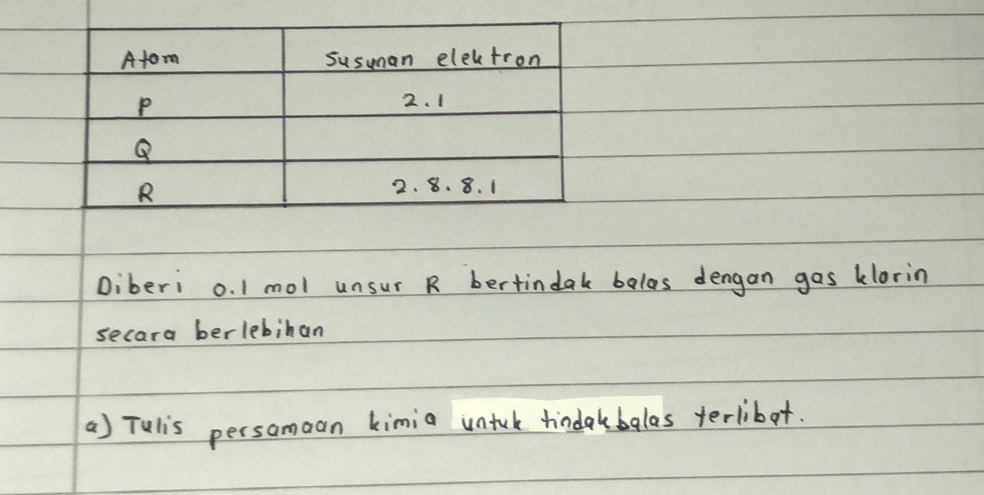 Atom Susunan elektron
P 2.1
Q
R 2.8.8.1
Diberi 0.1 mol unsur R bertindak balas dengan gas klorin
secara berlebihan
a) Tulis persamaan kimia untuk tindakbalas terlibat.